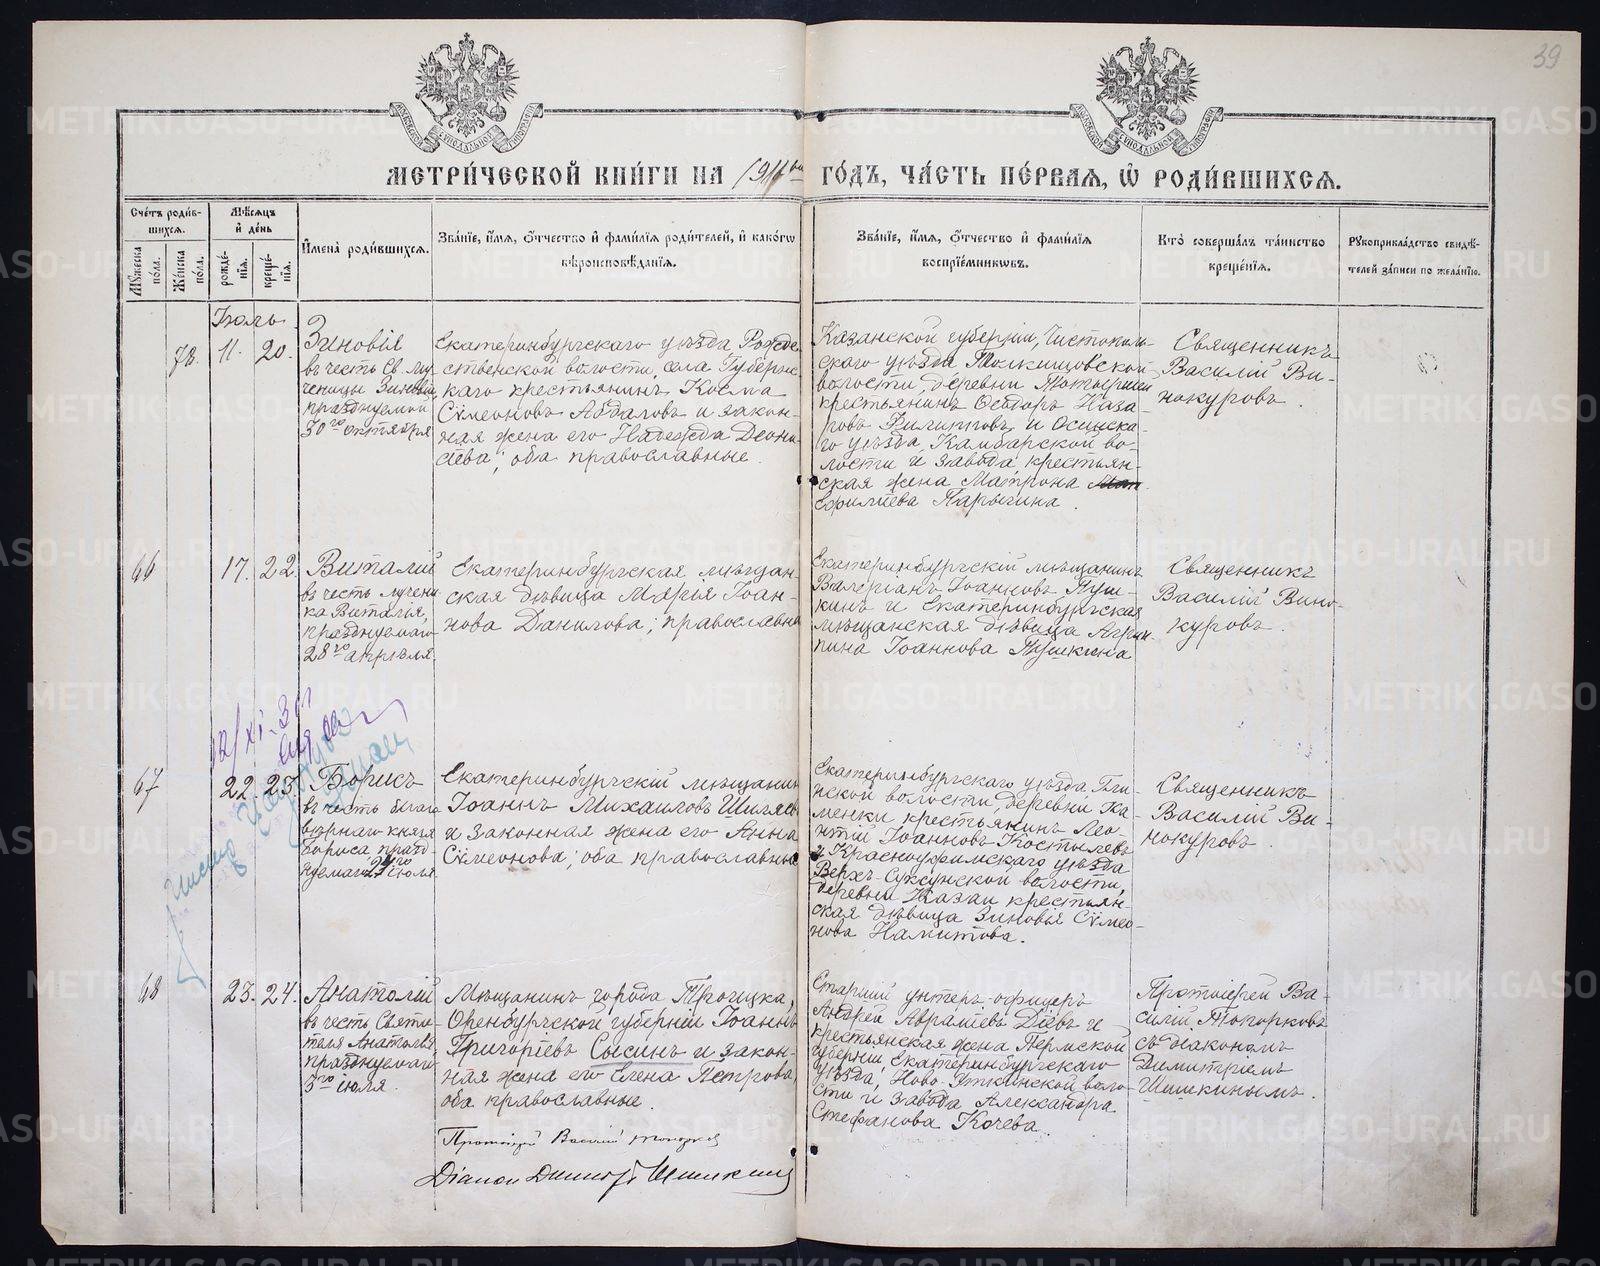 39
МЕТРИ́ЧЕСКОЙ КНИ́ГИ НА 1916ый ГО́ДЪ, ЧА́СТЬ ПЕ́РВАЯ, Ѡ РОДИ́ВШИХСЯ.
Сче́тъ роди́в-
шихся.
Мѣ́сяцъ
и̓ де́нь
Мꙋ́жеска
по́ла.
Же́нска
по́ла.
рожде́-
нїя.
креще́-
нїя.
И̓мена̀ роди́вшихся.
Зва́нїе, и̓́мя, ѻ҆́тчество и̓ фами́лїя роди́телей, и̓ како́гѡ
вѣроисповѣ́данїя.
Зва́нїе, и̓́мя, ѻ҆́тчество и̓ фами́лїя
воспрїе́мникѡвъ.
Кто̀ соверша́лъ та́инство
креще́нїя.
Рꙋкоприкла́дство свидѣ́-
телей за́писи по жела́нїю.
Іюль.
78.
11.
20.
Зиновія
въ честь Св. му-
ченицы Зиновіи
празднуемой
30го октября
Екатеринбургскаго уѣзда Рожде-
ственской волости, села Губерн-
скаго крестьянинъ Косма
Сѵмеоновъ Абдаловъ и закон-
ная жена его Надежда Діони-
сіева; оба православные.
Казанской губерніи, Чистополь-
скаго уѣзда
волости, деревни
крестьянинъ Ѳеодоръ Наза-
ровъ Филипповъ и Осинска-
го уѣзда Камбарской во-
лости и завода крестьян-
ская жена Матрона
Ефиміева Парыгина.
Священникъ
Василій Ви-
нокуровъ.
66
17.
22.
Виталій
въ честь мучени-
ка Виталія,
празднуемаго
28го апрѣля.
Екатеринбургская мѣщан-
ская дѣвица Марія Іоан-
нова Данилова; православна
Екатеринбургскій мѣщанинъ
Валеріанъ Іоанновъ Пуш-
кинъ и Екатеринбургская
мѣщанская дѣвица Агрип-
пина Іоаннова Пушкина
Священникъ
Василій Вино-
куровъ.
12/XI-30
67
22.
23.
Борисъ
въ честь благо-
вѣрнаго князя
Бориса празд-
нуемаго 24го іюля
Екатеринбургскій мѣщанинъ
Іоаннъ Михаиловъ Шиляевъ
и законная жена его Анна
Сѵмеонова; оба православные
Екатеринбургскаго уѣзда,
волости, деревни Ка-
менки крестьянинъ Лео-
нтій Іоанновъ Костылевъ
и Красноуфимскаго уѣзда
Верхъ-Суксунской волости,
деревни Казаи крестьян-
ская дѣвица Зиновія Сѵмео-
нова Намитова.
Священникъ
Василій Ви-
нокуровъ.
68
23.
24.
Анатолій
въ честь Святи-
теля Анатолія,
празднуемаго
3го іюля.
Мѣщанинъ города Троицка,
Оренбургской губерніи Іоаннъ
Григоріевъ Сысинъ и закон-
ная жена его Елена Петрова,
оба православные.
Старшій унтеръ-офицеръ
Андрей Авраміевъ Діевъ и
крестьянская жена Пермской
губерніи, Екатеринбургскаго
уѣзда, Ново-Уткинской воло-
сти и завода Александра
Стефанова Кочева.
Протоіерей Ва-
силій Топорковъ
съ діакономъ
Димитріемъ
Шишкинымъ.
Протоіерей Василій Топорков
Діакон Димитрій Шишкинъ
METRIKI.GASO-URAL.RU